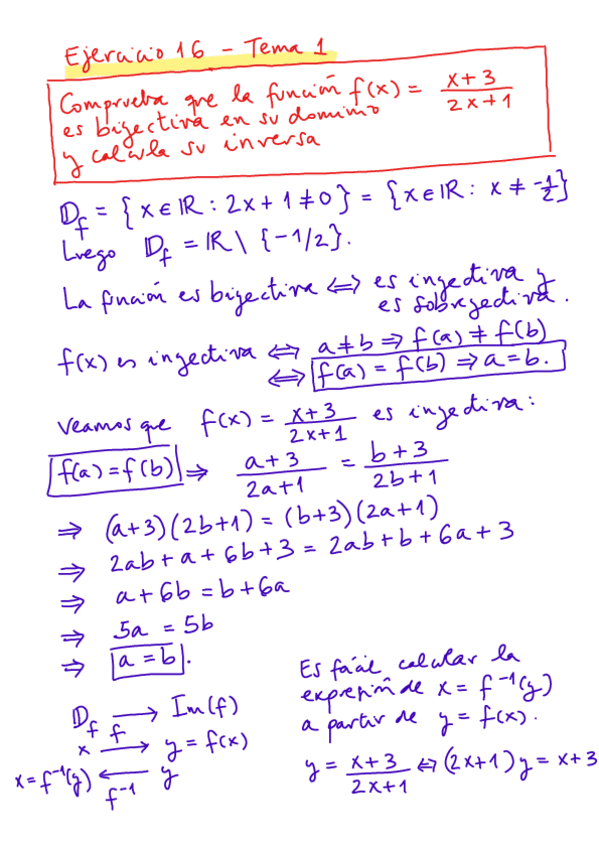 Ejercicio 16 - Tema 1
Comprueba que la función f(x) = \frac{x+3}{2x+1}
es biyectiva en su dominio
y calcula su inversa
D_f = {x ∈ ℝ : 2x+1 ≠ 0} = {x ∈ ℝ : x ≠ -\frac{1}{2}}
Luego D_f = ℝ \ {-1/2}.
La función es biyectiva ⇔ es inyectiva y
es sobreyectiva.
f(x) es inyectiva ⇔ a ≠ b ⇒ f(a) ≠ f(b)
⇔ f(a) = f(b) ⇒ a = b.
Veamos que f(x) = \frac{x+3}{2x+1} es inyectiva:
f(a) = f(b) ⇒ \frac{a+3}{2a+1} = \frac{b+3}{2b+1}
⇒ (a+3)(2b+1) = (b+3)(2a+1)
⇒ 2ab + a + 6b + 3 = 2ab + b + 6a + 3
⇒ a + 6b = b + 6a
⇒ 5a = 5b
⇒ a = b.
D_f \xrightarrow{f} Im(f)
x → y = f(x)
x = f⁻¹(y) \xleftarrow{f⁻¹} y
Es fácil calcular la
expresión de x = f⁻¹(y)
a partir de y = f(x).
y = \frac{x+3}{2x+1} ⇔ (2x+1)y = x+3